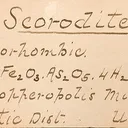 Scorodite
orhombic.
Fe₂O₃.As₂O₅.4H₂
opperopolis M
tic Dist. U